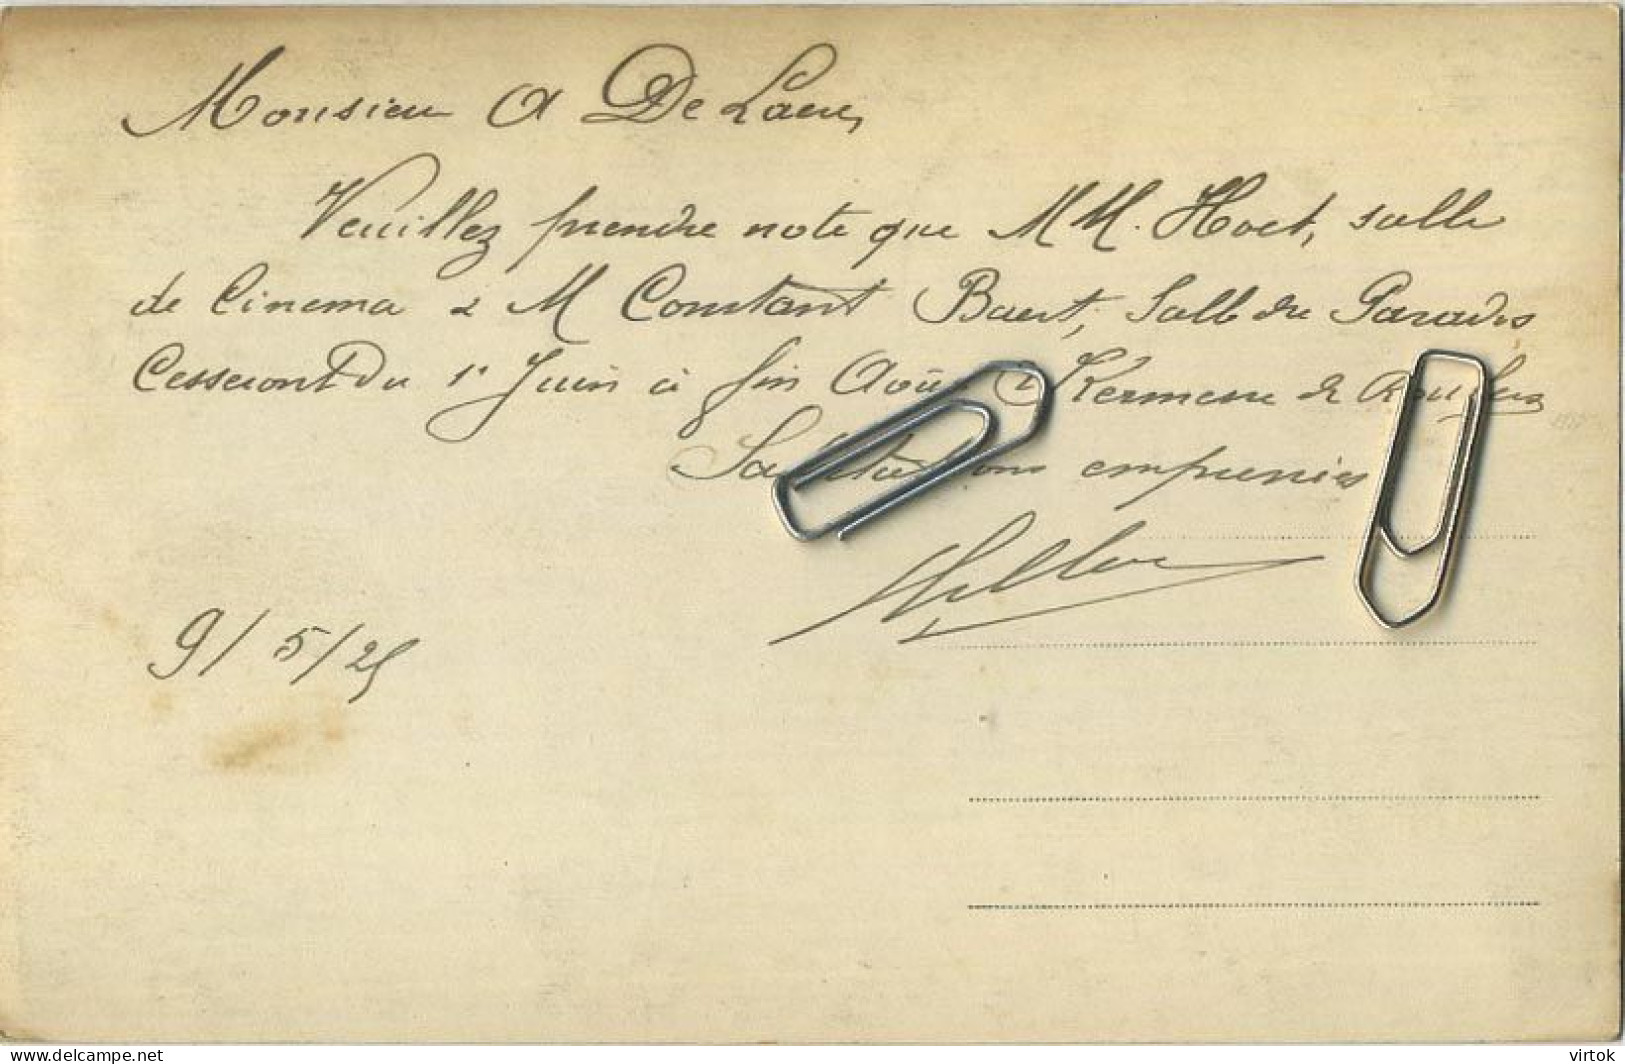 Monsieur A De Laere,
Veuillez prendre note que MM. Hoet, salle
de Cinema & M Constant Baert, Salle du Paradis
Cesseront Du 1r Juin à fin Août Kermesse de
Salutations empressées
9/5/25
delcampe.net
virtok